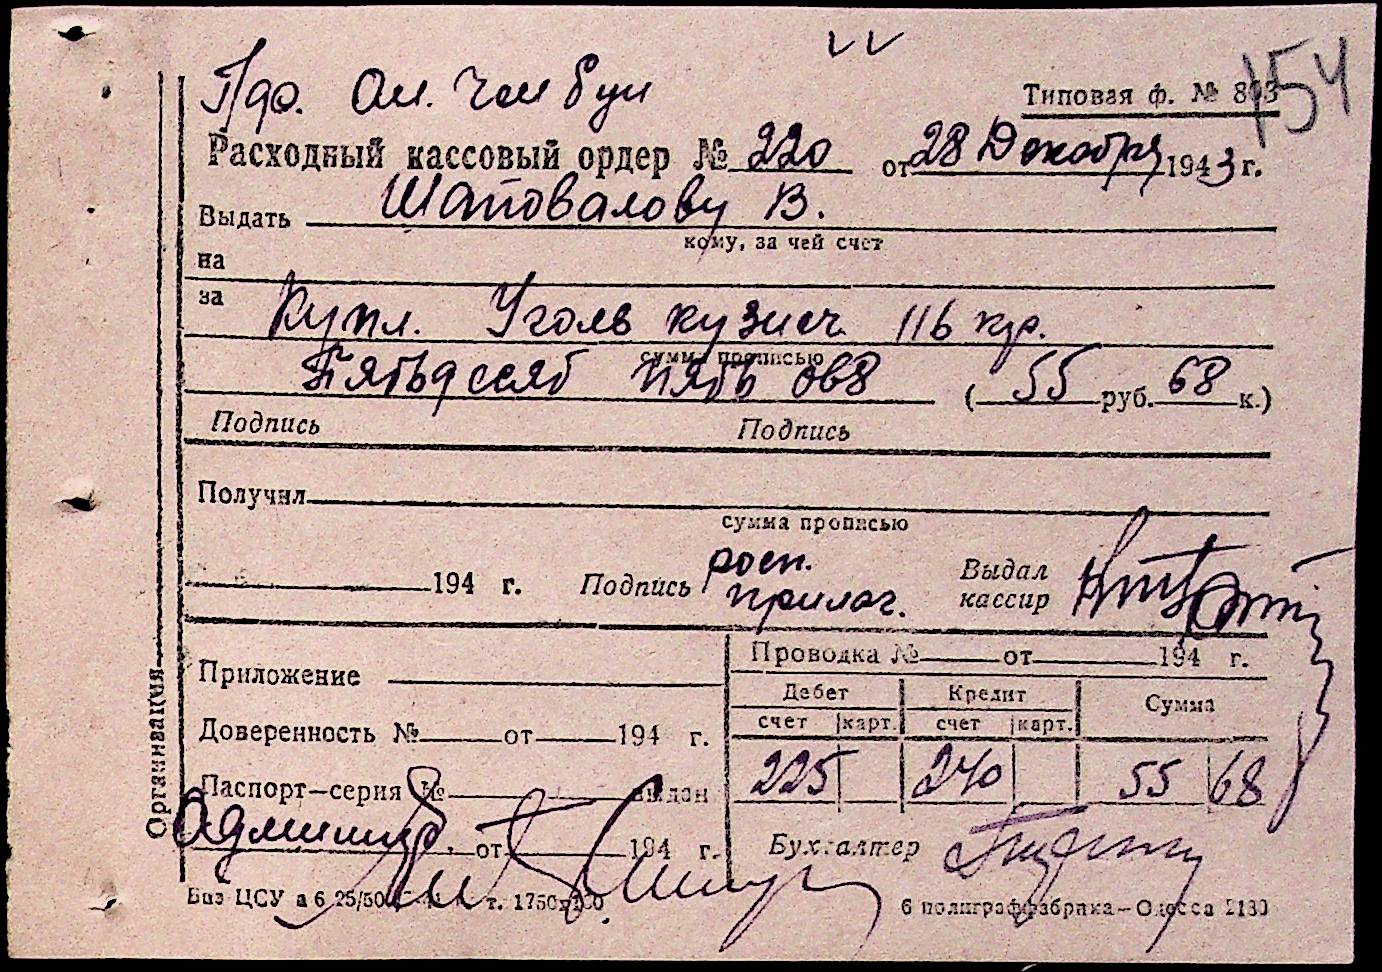 154
Типовая ф. № 803
Расходный кассовый ордер № 220 от 28 Декабря 1943 г.
Выдать Шаповалову В.
кому, за чей счет
на
за Купл. Уголь кузнеч. 116 кгр.
сумма прописью
Пятьдесят пять ов8 ( 55 руб. 68 к.)
Подпись Подпись
Получил
сумма прописью
194 г. Подпись росп. прилаг. Выдал кассир
Организация
Приложение
Доверенность № от 194 г.
Паспорт—серия № выдан
от 194 г.
Проводка № от 194 г.
Дебет Кредит Сумма
счет карт. счет карт.
225 240 55 68
Бухгалтер
6 полиграффабрика—Одесса 2130